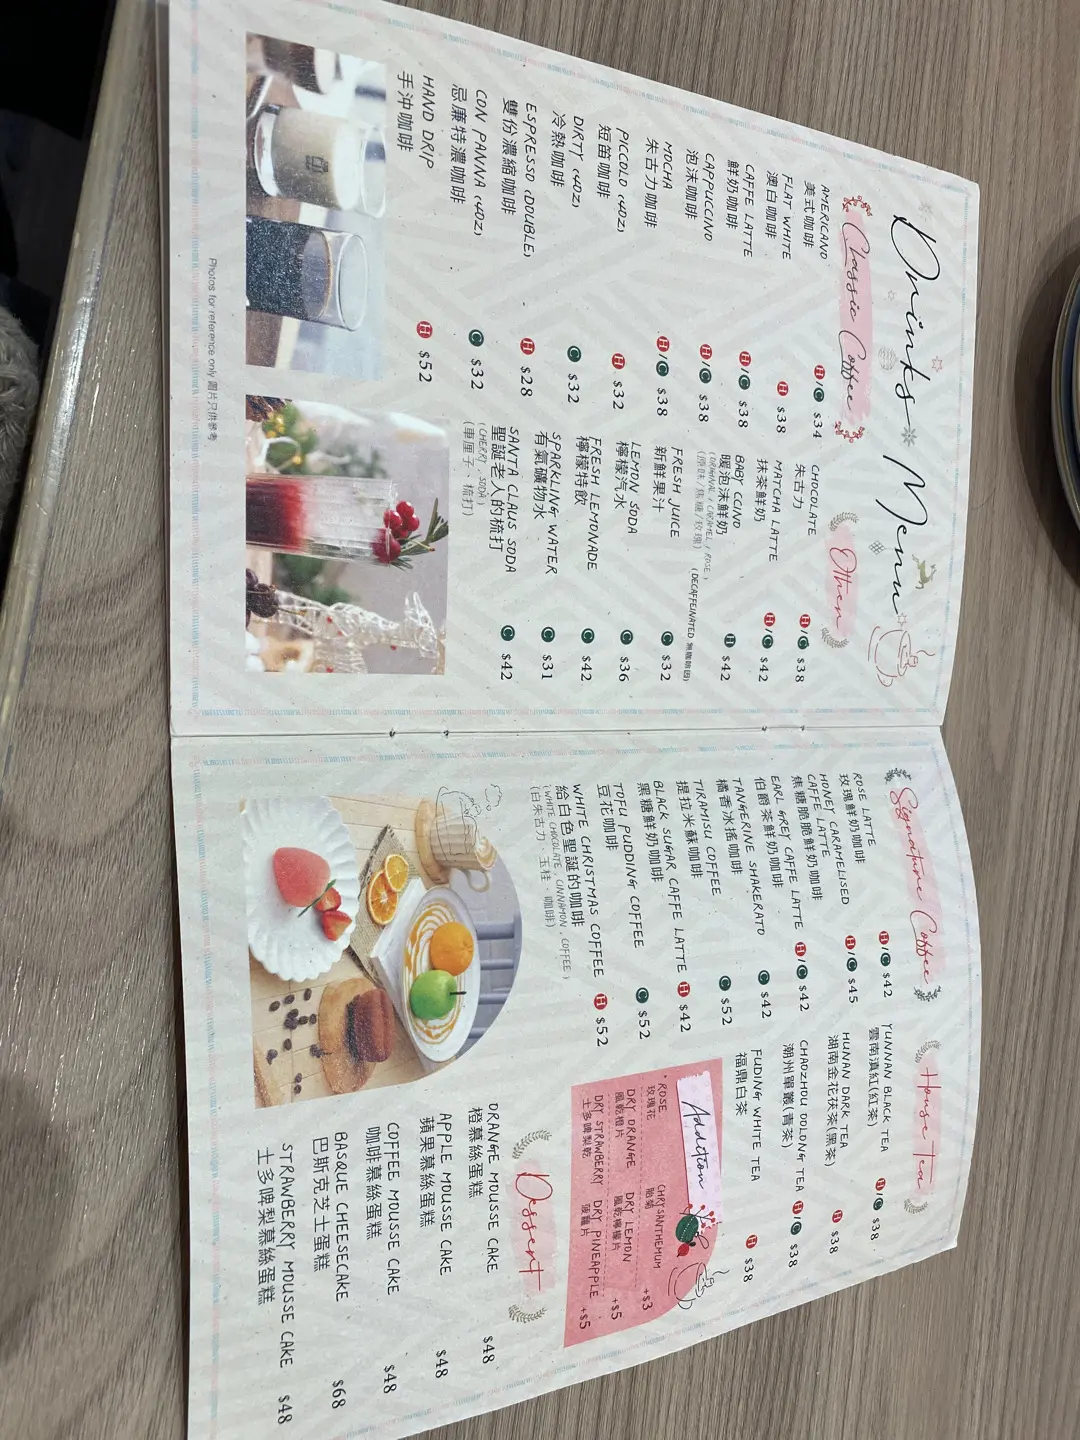 Drinks Menu
Classic Coffee
AMERICANO H/C $34
美式咖啡
FLAT WHITE H $38
澳白咖啡
CAFFE LATTE H/C $38
鮮奶咖啡
CAPPUCCINO H/C $38
泡沫咖啡
MOCHA H/C $38
朱古力咖啡
PICCOLO (4OZ) H $32
短笛咖啡
DIRTY (4OZ) C $32
冷熱咖啡
ESPRESSO (DOUBLE) H $28
雙份濃縮咖啡
CON PANNA (4OZ) C $32
忌廉特濃咖啡
HAND DRIP H $52
手沖咖啡
Photos for reference only 圖片只供參考
Other
CHOCOLATE H/C $38
朱古力
MATCHA LATTE H/C $42
抹茶鮮奶
BABY CCINO H $42
暖泡沫鮮奶
(ORIGINAL / CARAMEL / ROSE)
(原味/焦糖/玫瑰) (DECAFFEINATED 無咖啡因)
FRESH JUICE C $32
新鮮果汁
LEMON SODA C $36
檸檬汽水
FRESH LEMONADE C $42
檸檬特飲
SPARKLING WATER C $31
有氣礦物水
SANTA CLAUS SODA C $42
聖誕老人的梳打
(CHERRY, SODA)
(車厘子, 梳打)
Signature Coffee
ROSE LATTE H/C $42
玫瑰鮮奶咖啡
HONEY CARAMELISED
CAFFE LATTE H/C $45
焦糖脆脆鮮奶咖啡
EARL GREY CAFFE LATTE H/C $42
伯爵茶鮮奶咖啡
TANGERINE SHAKERATO C $42
橘香冰搖咖啡
TIRAMISU COFFEE C $52
提拉米蘇咖啡
BLACK SUGAR CAFFE LATTE H $42
黑糖鮮奶咖啡
TOFU PUDDING COFFEE C $52
豆花咖啡
WHITE CHRISTMAS COFFEE H $52
給白色聖誕的咖啡
(WHITE CHOCOLATE, CINNAMON, COFFEE)
(白朱古力, 玉桂, 咖啡)
House Tea
YUNNAN BLACK TEA H/C $38
雲南滇紅(紅茶)
HUNAN DARK TEA H $38
湖南金花茯茶(黑茶)
CHAOZHOU OOLONG TEA H/C $38
潮州單叢(青茶)
FUDING WHITE TEA H $38
福鼎白茶
Addition
ROSE CHRYSANTHEMUM +$3
玫瑰花 胎菊
DRY ORANGE DRY LEMON +$5
風乾橙片 風乾檸檬片
DRY STRAWBERRY DRY PINEAPPLE +$5
士多啤梨乾
Dessert
ORANGE MOUSSE CAKE $48
橙慕絲蛋糕
APPLE MOUSSE CAKE $48
蘋果慕絲蛋糕
COFFEE MOUSSE CAKE $48
咖啡慕絲蛋糕
BASQUE CHEESECAKE $68
巴斯克芝士蛋糕
STRAWBERRY MOUSSE CAKE $48
士多啤梨慕絲蛋糕